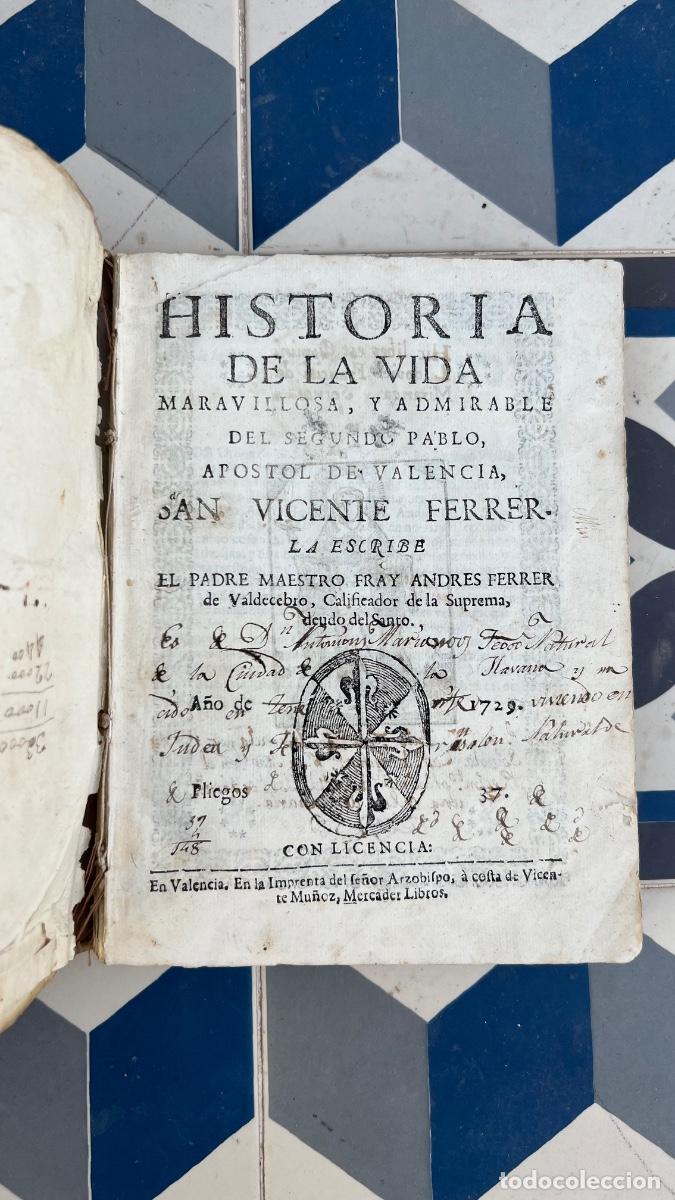 HISTORIA
DE LA VIDA
MARAVILLOSA, Y ADMIRABLE
DEL SEGUNDO PABLO,
APOSTOL DE VALENCIA,
SAN VICENTE FERRER.
LA ESCRIBE
EL PADRE MAESTRO FRAY ANDRES FERRER
de Valdecebro, Calificador de la Suprema,
deudo del Santo.
Es de Dn Antonio Mariano Natural
de la Ciudad de la Havana y na
cido en Año de 1729. viviendo en
Judea y Natural de
Pliegos 37.
37
4
148
CON LICENCIA:
En Valencia. En la Imprenta del señor Arzobispo, à costa de Vicen-
te Muñoz, Mercader Libros.
todocoleccion